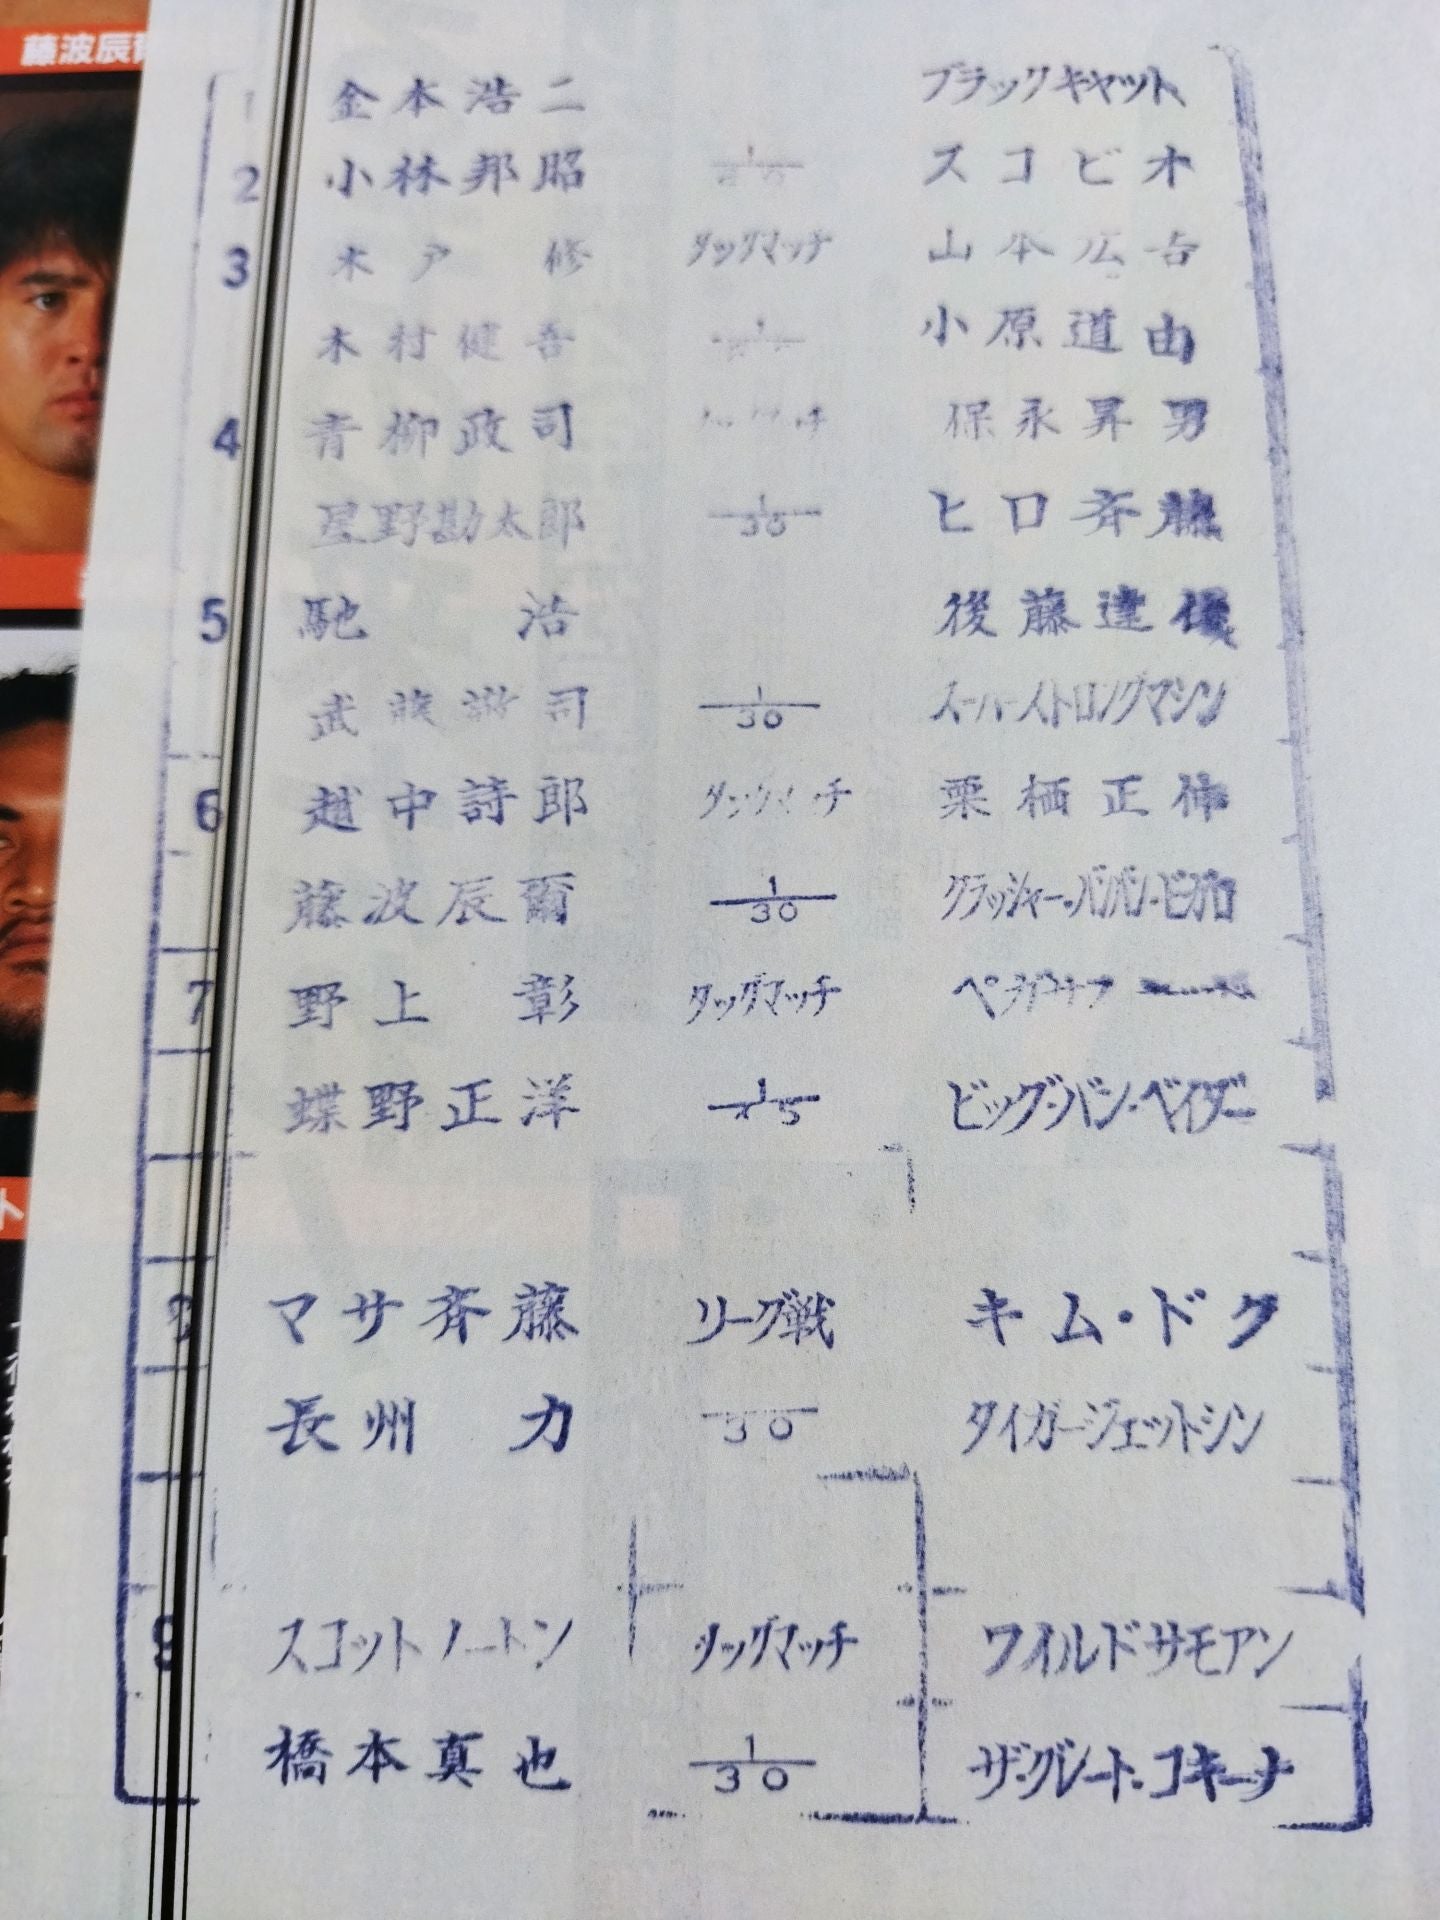 藤波辰爾
1 金本浩二 ブラックキャット
2 小林邦昭 1 スコビオ
3 木戸 修 タッグマッチ 山本広吉
木村健吾 1 小原道由
4 青柳政司 保永昇男
星野勘太郎 1/30 ヒロ斉藤
5 馳 浩 後藤達俊
武藤敬司 1/30 スーパーストロングマシン
6 越中詩郎 タッグマッチ 栗栖正伸
藤波辰爾 1/30 クラッシャー・バンバン・ビガロ
7 野上 彰 タッグマッチ ペガサス
蝶野正洋 1/45 ビッグ・バン・ベイダー
8 マサ斉藤 リーグ戦 キム・ドク
長州 力 30 タイガージェットシン
9 スコットノートン タッグマッチ ワイルドサモアン
橋本真也 1/30 ザ・グレート・コキーナ
ト